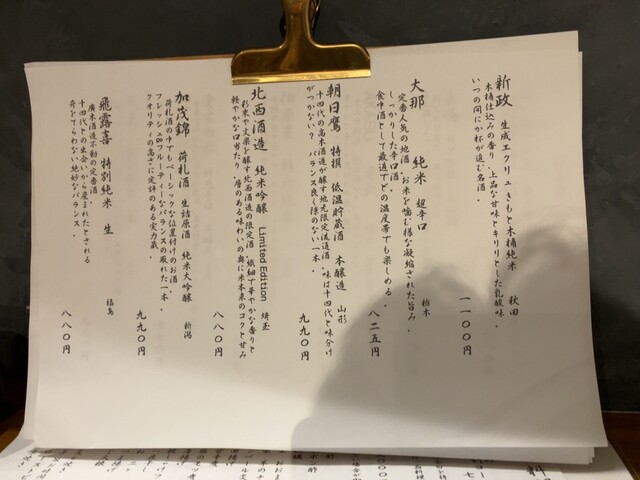 新政　生成エクリュ　きもと木桶純米　秋田
木桶仕込みの香り　上品な甘味とキリリとした乳酸味。
いつの間にか杯が進む名酒。
一一〇〇円
大那　純米　超辛口　栃木
定番人気の地酒。お米を噛む様な凝縮された旨み。
しっかりした辛口酒。
食中酒として最適でどの温度帯でも楽しめる。
八二五円
朝日鷹　特撰　低温貯蔵酒　本醸造　山形
十四代の高木酒造が醸す地元限定流通酒。味は十四代と味分け
がつかない？　バランス良く隙のない一本。
九九〇円
北西酒造　純米吟醸　Limited Edition　埼玉
彩來や文楽を醸す北西酒造の限定酒　繊細で華やかな香りと
軽やかな口当たり。層のある味わいの奥に米本来のコクと甘み
八八〇円
加茂錦　荷札酒　生詰原酒　純米大吟醸　新潟
荷札酒の中でもベーシックな位置付けのお酒。
フレッシュ&フルーティーなバランスの取れた一本。
クオリティの高さに定評のある実力蔵。
九九〇円
飛露喜　特別純米　生　福島
廣木酒造不動の定番酒
十四代との出会いから産まれたとされる
奇をてらわない絶妙なバランス。
八八〇円